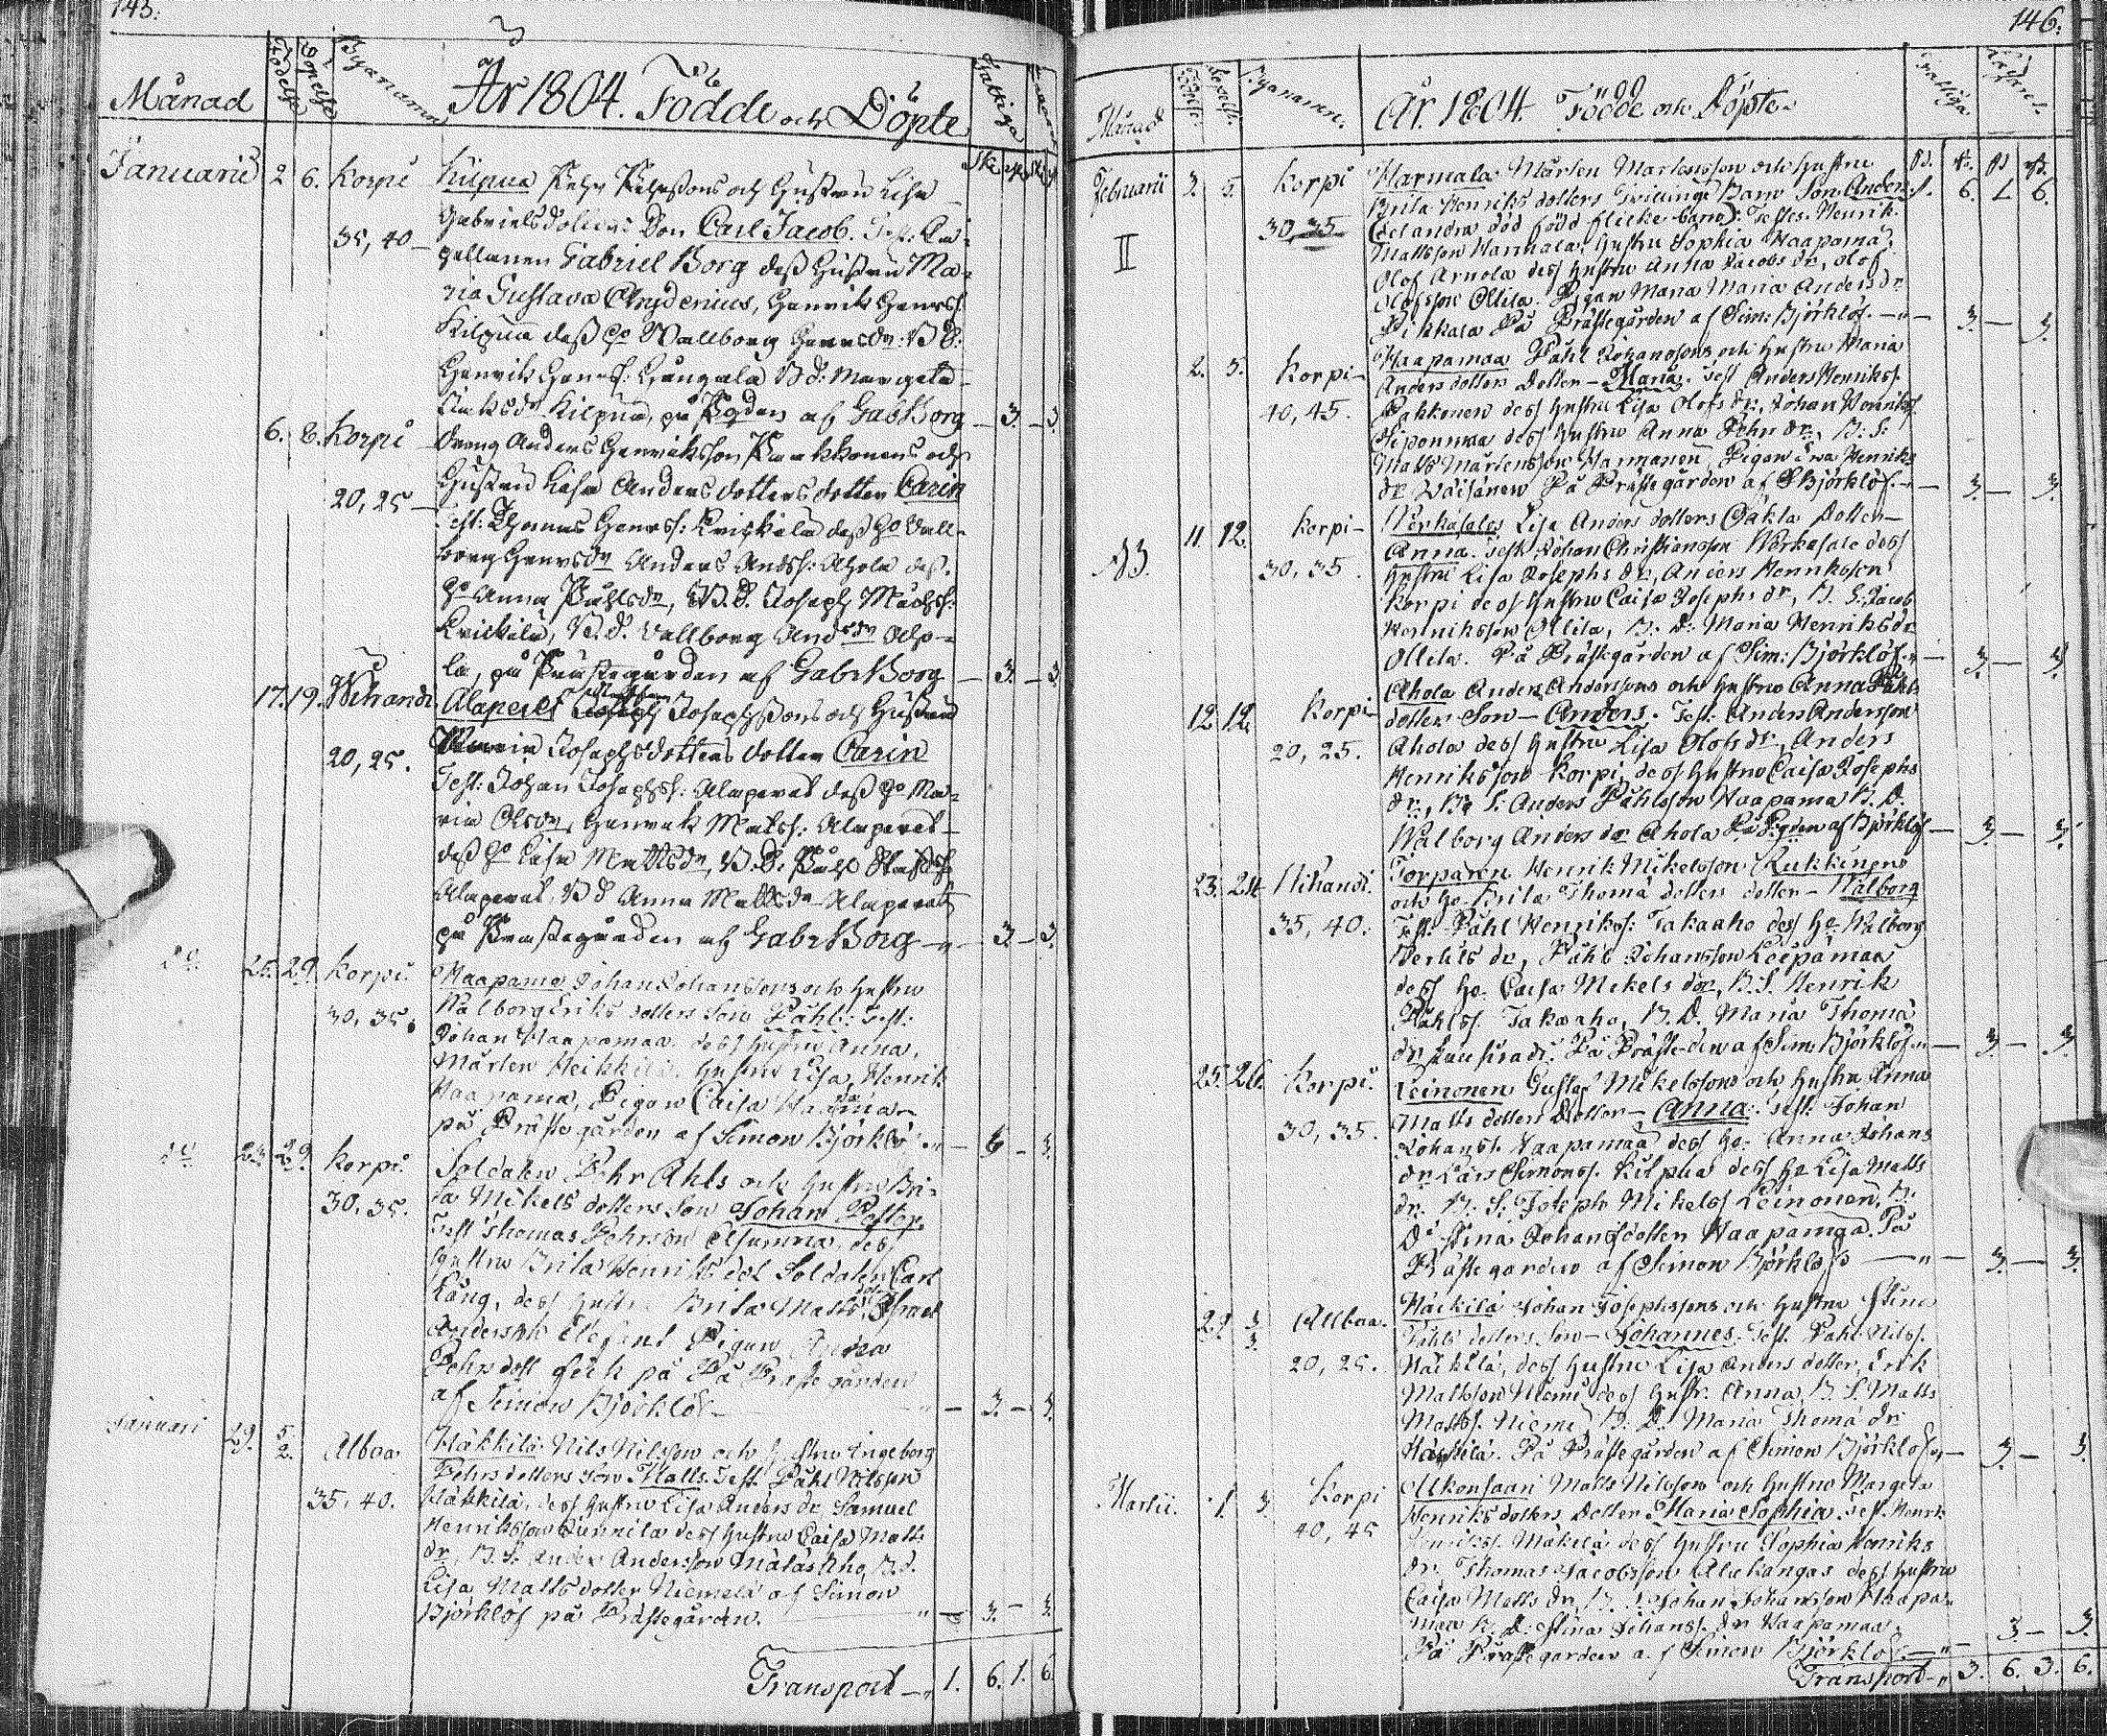 145:
Månad
Födelse
Döpelse
Byanamn
År 1804. Födde och Döpte
Fattiga
Sk rs Sk
Januarii 2 6. Korpi Kilpua Pehr Pehrssons och Hustru Lisa
Gabrielsdotters Son Carl Jacob. Test: Ca-
35, 40 pellanen Gabriel Borg dess Hustru Ma-
ria Gustava Chydenius, Henrik Henrs:
Kilpua dess Ho Wallborg Henrsdr: B D:
Henrik Henrs: B d: Margeta
Kilpua, på Pgdn af Gab Borg 3. 3.
6. 6. Korpi Dreng Anders Henriksson Paakkonens och
Hustru Lisa Anders dotters dotter Carin
20, 25 Test: Thomas Henrs: dess Ho Vall-
borg Henrsdr Anders Ands: Ahola dess
Ho Anna Påhlsdr, B. d. Joseph Machs:
B. d. Vallborg Andrsdr Aho-
la, på Prästegården af Gabr Borg 3. 3.
17. 19. Wihandi Alaperet Josephssons och Hustru
Maria Josephsdotters dotter Carin
20, 25. Test: Johan Josephss: Alaperet dess Ho Ma-
ria Olsdr, Henrik Matss: Alaperet
dess Ho Lisa Mattsdr, B. d. Påhl
Alaperet, B d Anna Mattsdr Alaperet
på Prästegården af Gabr Borg 3. 3.
do 25. 29. Korpi. Haapama Johan Johanssons och Hustru
Walborg Eriks dotters Son Påhl: Test:
30, 35. Johan Haapamaa dess hustru Anna,
Mårten Heikkilä. hustru Lisa, Henrik
Haapama, Pigan Caisa Haapama
på Prästegården af Simon Björklöf 3.
do 29. Korpi. Soldaten Pehr Ahls och hustru Bri-
30, 35. ta Mikels dotters Son Johan Petter.
Test Thomas Pehrsson dess
hustru Brita Henriks dot Soldaten Carl
Lång, dess hustru Brita Matts dotr Israel
Andersson Elefant Pigan Andra
Pehrs dott På Prästegården
af Simon Björklöf 3. 3.
Januari 29. 5/2. Albaa Häkkilä Nils Nilsson och hustru Ingeborg
Pehrs dotters son Matts. Test Påhl Nilsson
35. 40. Häkkilä, dess hustru Lisa Anders dr Samuel
Henriksson Junnila dess hustru Caisa Matts
dr, B. S. Anders Andersson Mätäs Aho, B. d.
Lisa Matts dotter Niemelä af Simon
Björklöf på Prästegården. 3. 3.
Transport 1. 6. 1. 6.
146.
Månad
Födelse.
Döpelse.
Byanamn.
År. 1804. Födde och Döpte
Fattiga
Februarii 3. 5. Korpi Harmala Mårten Mårtensson och hustru
Brita Henriks dotters Tvillinge Barn Son Anders 6. 6.
30, 35 det andra död född flicke barn. Testes. Henrik
II Mattsson Harmala, hustru Sophia Haapama
Olof Arnola dess hustru Anna Jacobs dr, Olof
Olofsson Ollila. Pigan Maria Maria Anders dr
Pikkala På Prästegården af Sim: Björklöf. 3. 3.
2. 5. Korpi Haapamaa Påhl Johanssons och hustru Maria
Anders dotters Dotter - Maria. Test Anders Henrikss.
40, 45. Pakkonen dess hustru Lisa Olofs dr, Johan Henrikss
Siponmaa dess hustru Anna Pehrs dr, B: S:
Matts Mårtensson Harmanen, Pigan Ewa Henriks
dr Wäisänen På Prästegården af S Björklöf 3. 3.
NB. 11. 12. Korpi Werkasalos Lisa Anders dotters Oäkta Dotter
Anna. Test Johan Christiansson Werkasale dess
30, 35. hustru Lisa Josephs dr, Anders Henriksson
Korpi dess hustru Caisa Josephs dr, B. S: Jacob
Henriksson Ollila, B. D. Maria Henriks dr
Ollila. På Prästegården af Sim: Björklöf 3. 3.
12. 12. Korpi Ahola Anders Anderssons och hustru Anna Påhls
dotters Son - Anders. Test: Anders Andersson
20, 25. Ahola dess hustru Lisa Olofs dr, Anders
Henriksson Korpi, dess hustru Caisa Josephs
dr, B. S: Anders Påhlsson Haapama B. D.
Walborg Anders dr Ahola På Pgden af Björklöf 3. 3.
23. 24. Wihandi. Torparen Henrik Mikelsson Rukkinens
och Ho Brita Thomä dotters dotter - Walborg
35, 40. Test. Påhl Henrikss: Takaaho dess Ho Walborg
Bertils dr, Påhl Johansson Leepämaa
dess Ho Caisa Mikels dr, B. S. Henrik
Påhlss. Takaaho, B. D. Maria Thomä
dr På Präste den af Sim. Björklöf 3. 3.
25. 26. Korpi. Leinonen Gustaf Mikelssons och hustru Anna
Matts dotters Dotter - Anna. Test. Johan
30, 35. Johanss. Haapamaa dess Ho Anna Johans
dr Lars Simonss. Kilpua dess Ho Lisa Matts
dr. B. S. Joseph Mikelss Leinonen, B.
D. Stina Johans dotter Haapamaa. På
Prästegården af Simon Björklöf 3. 3.
29. 3/3. Albaa. Häikilä Johan Josephssons och hustru Stina
Påhls dotters Son - Johannes. Test. Påhl Nilss.
20, 25. Häikilä, dess hustru Lisa Anders dotter, Erik
Mattsson Niemi dess hustr. Anna B. S. Matts
Mattss. Niemi, B. D. Maria Thomä dr
Häikilä. På Prästegården af Simon Björklöf 3. 3.
Martii. 1. 3. Korpi Ukonsaari Matts Nilsson och hustru Margeta
Henriks dotters Dotter Maria Sophia. Test. Henrik
40, 45 Henrikss. Mäkelä dess hustru Sophia Henriks
dr. Thomas Jacobsson Alakangas dess hustru
Caisa Matts dr, B. S. Johan Johansson Haapa-
maa B. D: Stina Johanss. dr Haapamaa.
På Prästegården af Simon Björklöf. 3. 3.
Transport 3. 6. 3. 6.